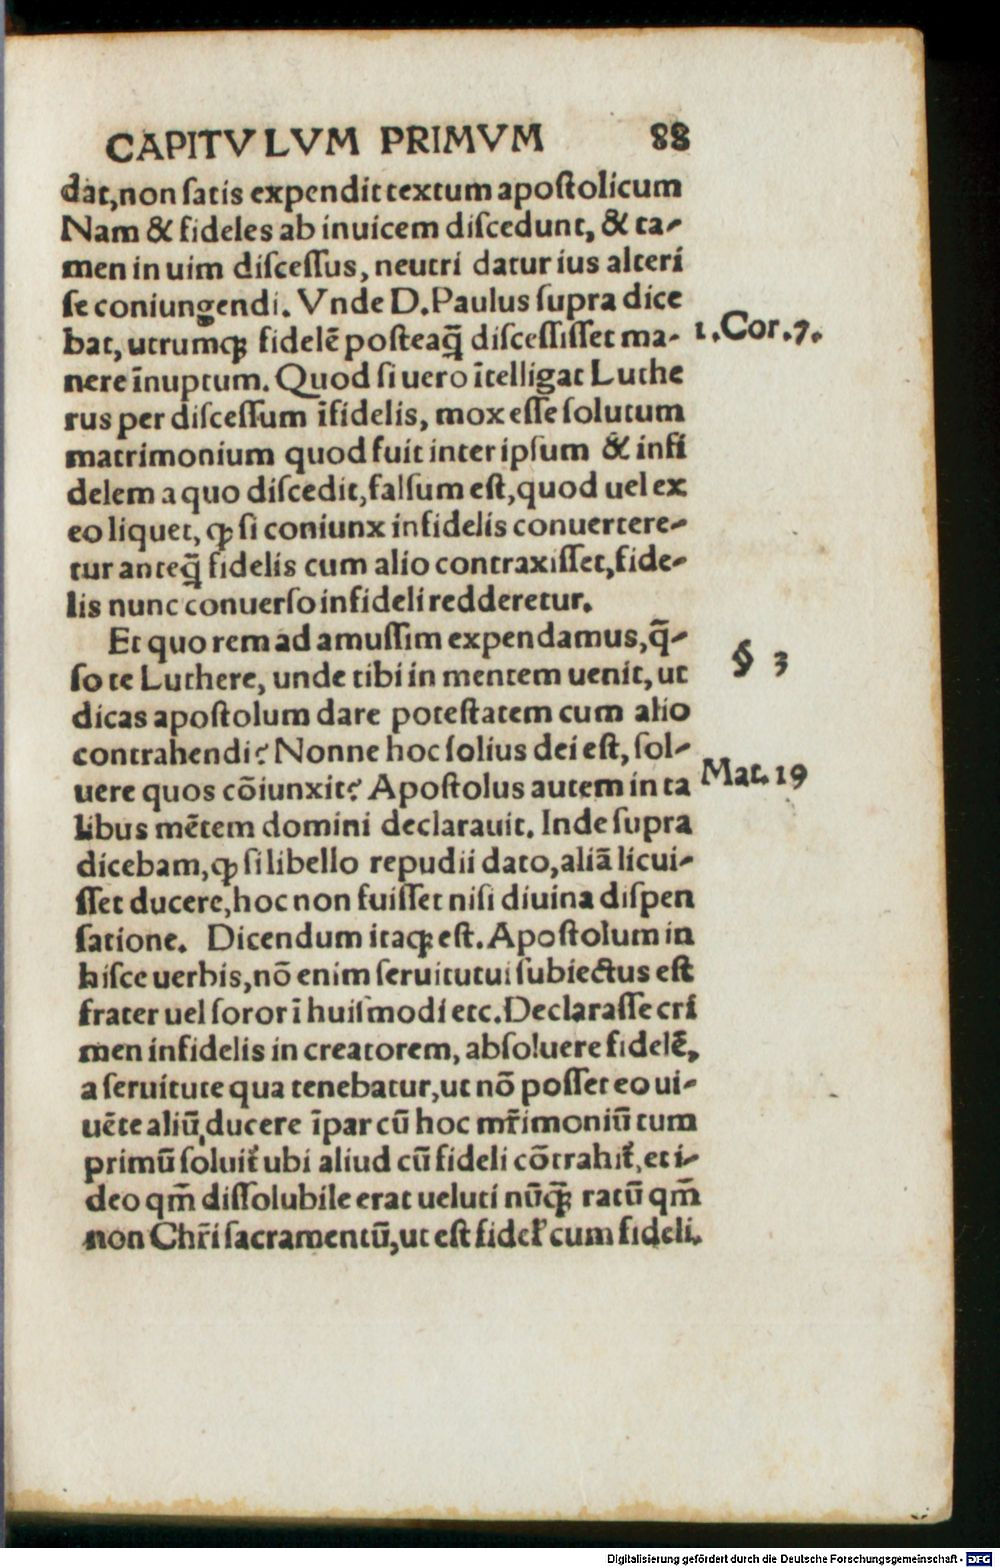 CAPITVLVM PRIMVM 88
dat, non ſatis expendit textum apoſtolicum
Nam & fideles ab inuicem diſcedunt, & ta-
men in uim diſceſſus, neutri datur ius alteri
ſe coniungendi. Vnde D. Paulus ſupra dice
bat, utrumqꝫ fidelē poſteaq̃ diſceſſiſſet ma-
1. Cor. 7.
nere īnuptum. Quod ſi uero ītelligat Luthe
rus per diſceſſum īfidelis, mox eſſe ſolutum
matrimonium quod fuit inter ipſum & infi
delem a quo diſcedit, falſum eſt, quod uel ex
eo liquet, ꝙ ſi coniunx infidelis conuertere-
tur anteq̃ fidelis cum alio contraxiſſet, fide-
lis nunc conuerſo infideli redderetur.
Et quo rem ad amuſſim expendamus, q̃-
§ 3
ſo te Luthere, unde tibi in mentem uenit, ut
dicas apoſtolum dare poteſtatem cum alio
contrahendi? Nonne hoc ſolius dei eſt, ſol-
uere quos cōiunxit? Apoſtolus autem in ta
Mat. 19
libus mētem domini declarauit. Inde ſupra
dicebam, ꝙ ſi libello repudii dato, aliā licui-
ſſet ducere, hoc non fuiſſet niſi diuina diſpen
ſatione. Dicendum itaqꝫ eſt. Apoſtolum in
hiſce uerbis, nō enim ſeruitutui ſubiectus eſt
frater uel ſoror ī huiſmodi etc. Declaraſſe cri
men infidelis in creatorem, abſoluere fidelē,
a ſeruitute qua tenebatur, ut nō poſſet eo ui-
uēte aliū, ducere īpar cū hoc mr̃imoniū tum
primū ſoluit᷑ ubi aliud cū fideli cōtrahit᷑, et i-
deo qm̃ diſſolubile erat ueluti nūqꝫ̃ ratū qm̃
non Chr̃i ſacramentū, ut eſt fidel᷑ cum fideli.
Digitalisierung gefördert durch die Deutsche Forschungsgemeinschaft - DFG